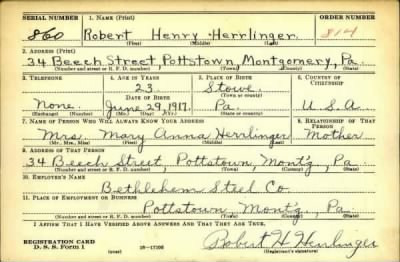 SERIAL NUMBER 1. NAME (Print) ORDER NUMBER
860 Robert Henry Herrlinger 814
(First) (Middle) (Last)
2. ADDRESS (Print)
34 Beech Street, Pottstown, Montgomery, Pa.
(Number and street or R. F. D. number) (Town) (County) (State)
3. TELEPHONE 4. AGE IN YEARS 5. PLACE OF BIRTH 6. COUNTRY OF CITIZENSHIP
23 Stowe
DATE OF BIRTH (Town or county)
None. June 29, 1917. Pa U.S.A
(Exchange) (Number) (Mo.) (Day) (Yr.) (State or country)
7. NAME OF PERSON WHO WILL ALWAYS KNOW YOUR ADDRESS 8. RELATIONSHIP OF THAT PERSON
Mrs. Mary Anna Herrlinger Mother
(Mr., Mrs., Miss) (First) (Middle) (Last)
9. ADDRESS OF THAT PERSON
34 Beech Street, Pottstown, Mont'g, Pa
(Number and street or R. F. D. number) (Town) (County) (State)
10. EMPLOYER'S NAME
Bethlehem Steel Co
11. PLACE OF EMPLOYMENT OR BUSINESS
Pottstown Mont'g, Pa
(Number and street or R. F. D. number) (Town) (County) (State)
I AFFIRM THAT I HAVE VERIFIED ABOVE ANSWERS AND THAT THEY ARE TRUE.
REGISTRATION CARD
D. S. S. Form 1 (over) Robert H Herrlinger
(Registrant's signature)